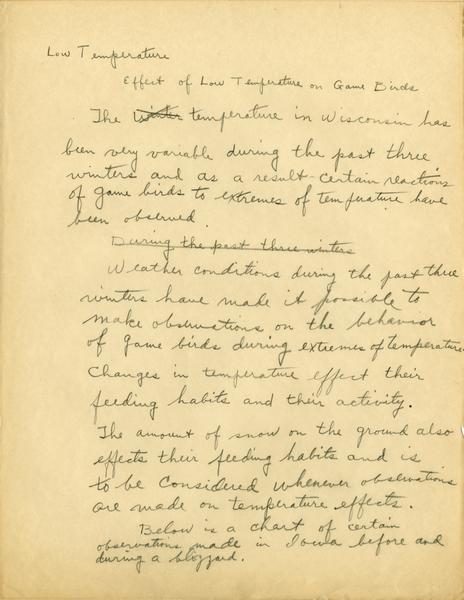 Low Temperature
Effect of Low Temperature on Game Birds
The Winter temperature in Wisconsin has
been very variable during the past three
winters and as a result certain reactions
of game birds to extremes of temperature have
been observed.
During the past three winters
Weather conditions during the past three
winters have made it possible to
make observations on the behavior
of game birds during extremes of temperature.
Changes in temperature effect their
feeding habits and their activity.
The amount of snow on the ground also
effects their feeding habits and is
to be considered whenever observations
are made on temperature effects.
Below is a chart of certain
observations made in Iowa before and
during a blizzard.